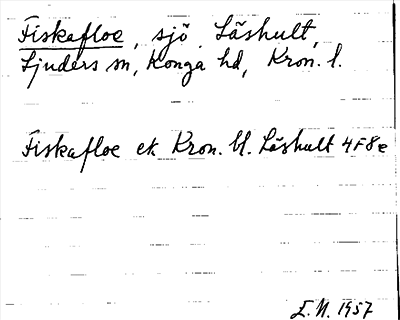 Fiskafloe, sjö, Låshult,
Ljuders sn, Konga hd, Kron. l.
Fiskafloe ek Kron. bl. Låshult 4F8e
E.N. 1957